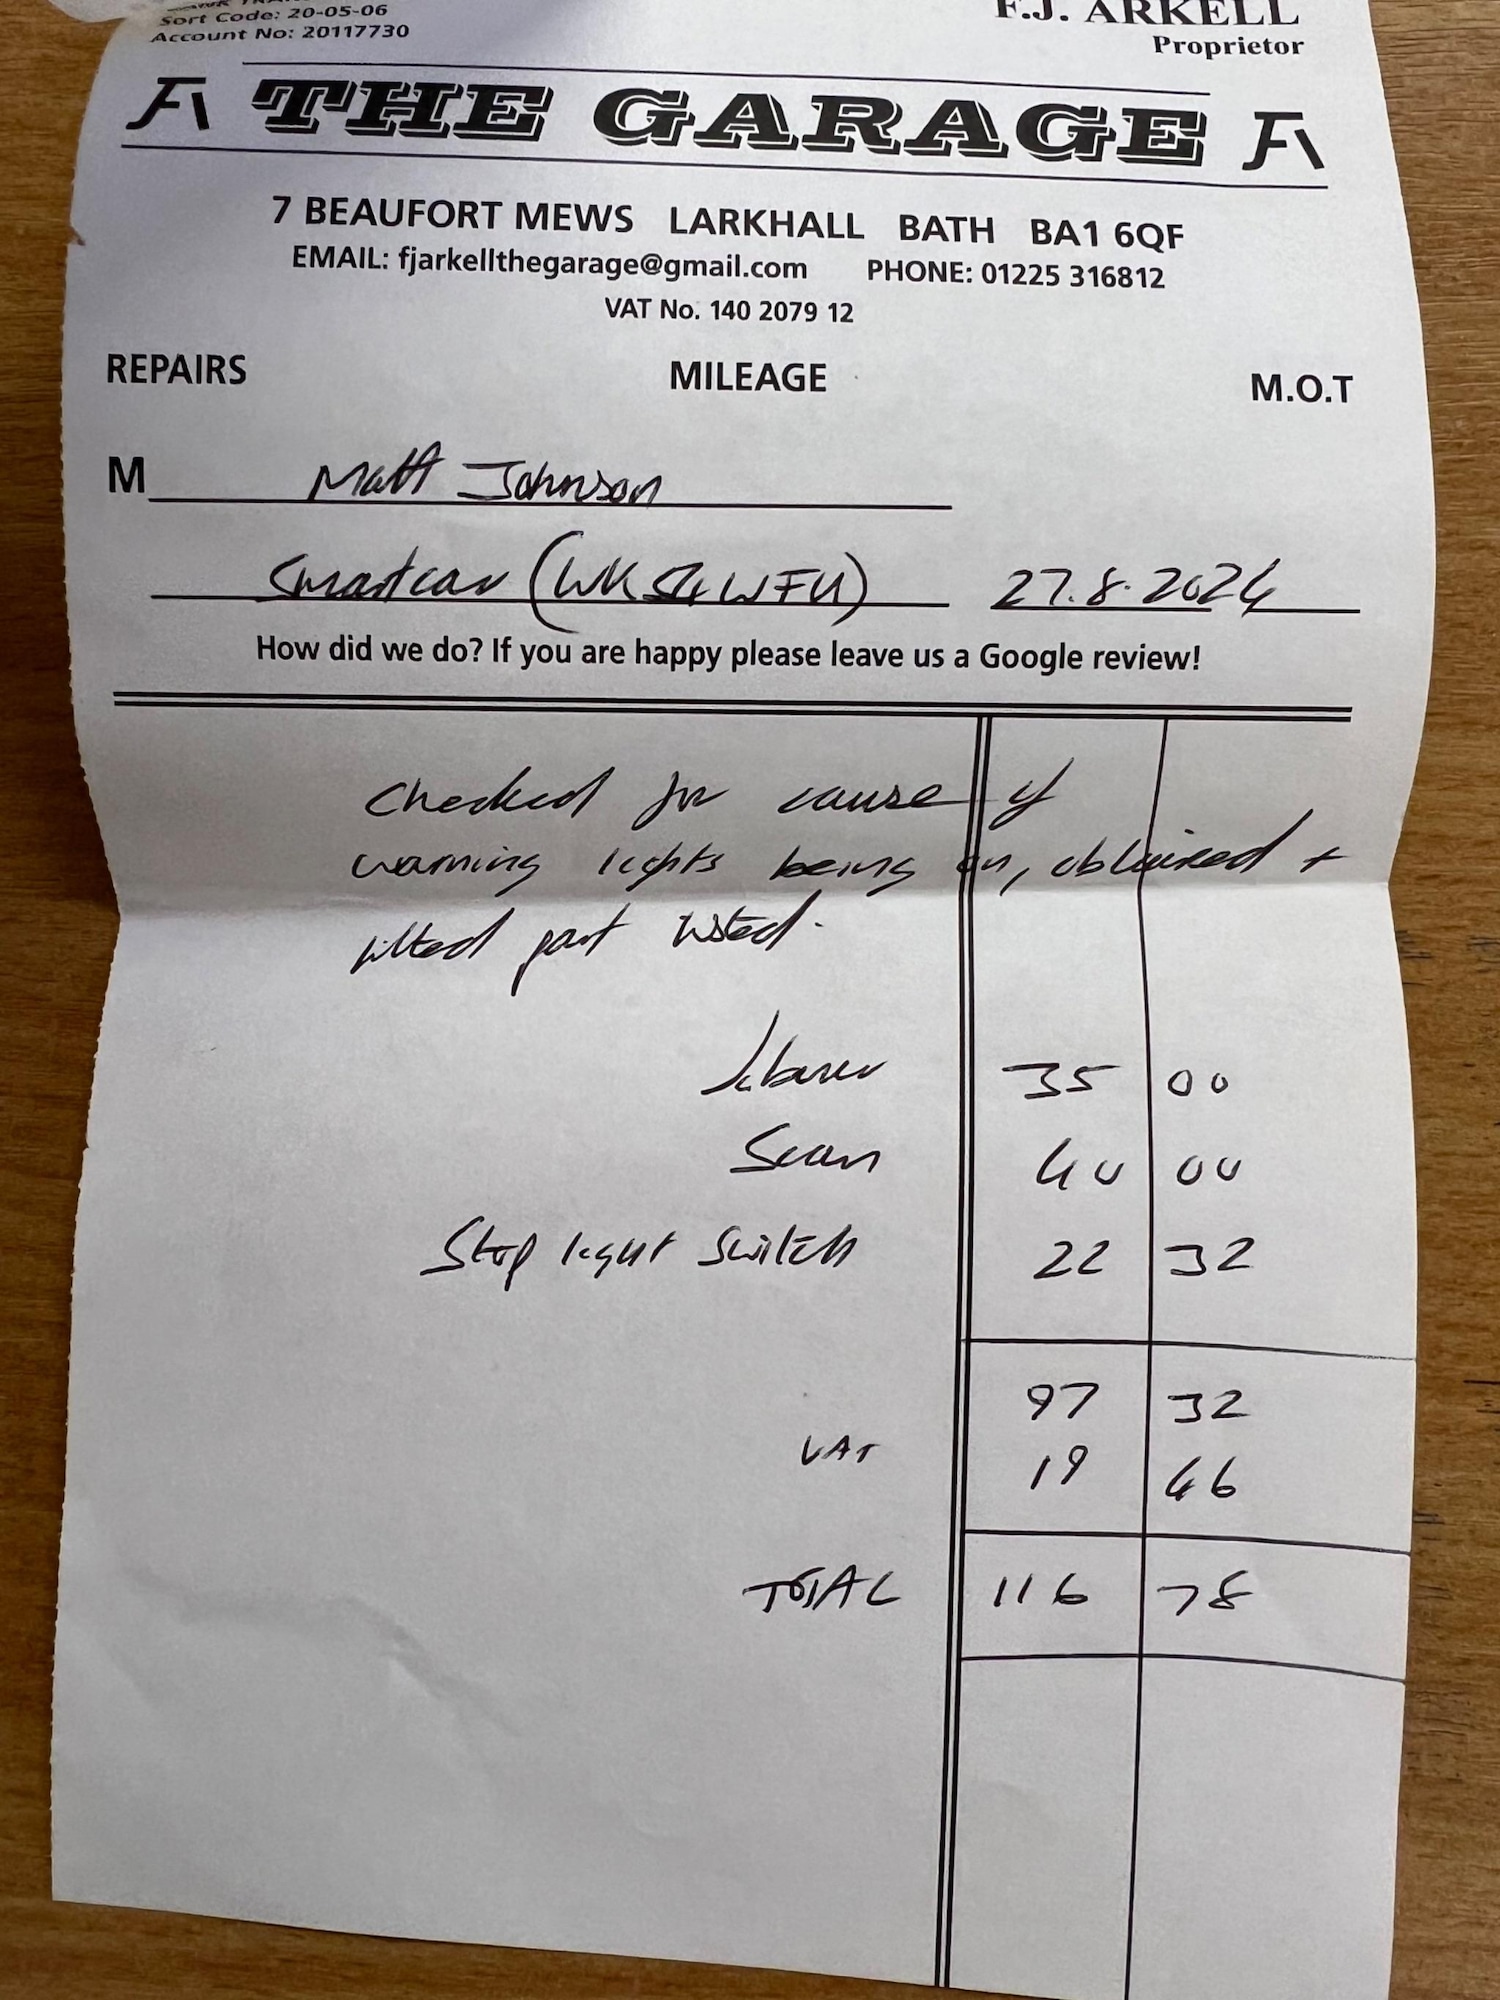 Sort Code: 20-05-06
Account No: 20117730
F.J. ARKELL
Proprietor
THE GARAGE
7 BEAUFORT MEWS LARKHALL BATH BA1 6QF
EMAIL: fjarkellthegarage@gmail.com PHONE: 01225 316812
VAT No. 140 2079 12
REPAIRS MILEAGE M.O.T
M Matt Johnson
Smartcar (WK54WFU) 27.8.2024
How did we do? If you are happy please leave us a Google review!
Checked for cause of
warning lights being on, obtained +
fitted part listed.
Labour 35 00
Scan 40 00
Stop light switch 22 32
97 32
VAT 19 46
TOTAL 116 78